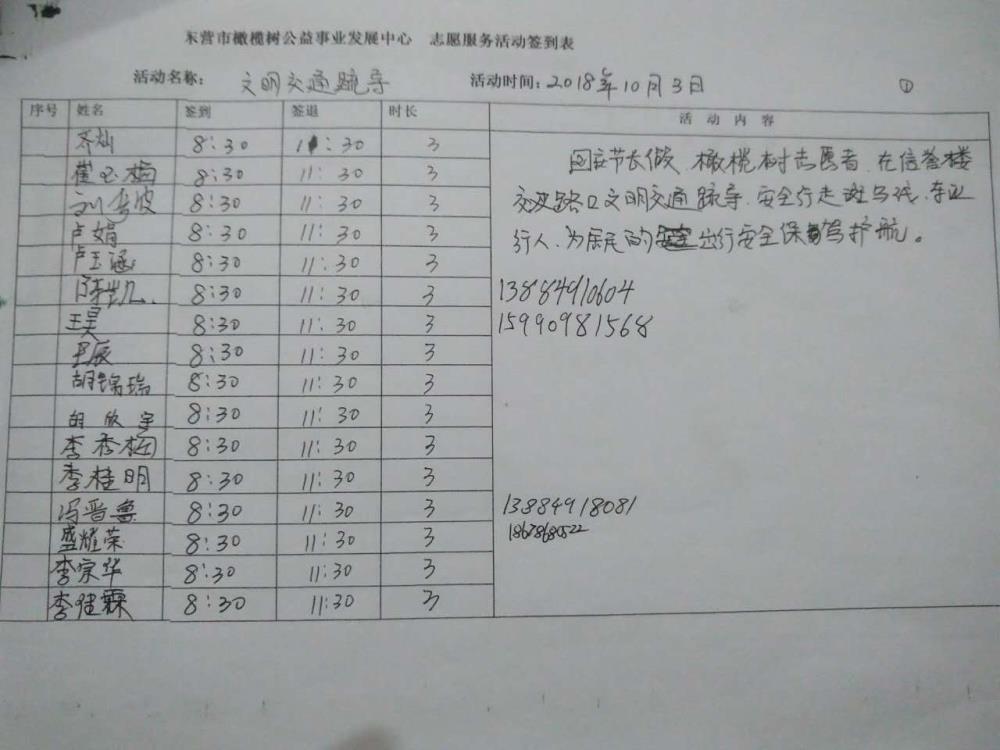 东营市橄榄树公益事业发展中心 志愿服务活动签到表
活动名称: 文明交通疏导 活动时间: 2018年10月3日 ①
序号 姓名 签到 签退 时长 活动内容
齐灿 8:30 11:30 3
崔玉梅 8:30 11:30 3
刘 波 8:30 11:30 3
卢娟 8:30 11:30 3
卢玉涵 8:30 11:30 3
陈凯 8:30 11:30 3
王昊 8:30 11:30 3
辰 8:30 11:30 3
胡锦瑞 8:30 11:30 3
胡欣宇 8:30 11:30 3
李秀梅 8:30 11:30 3
李桂明 8:30 11:30 3
冯晋鲁 8:30 11:30 3
盛耀荣 8:30 11:30 3
李宗华 8:30 11:30 3
李佳霖 8:30 11:30 3
国庆节长假,橄榄树志愿者,在信誉楼
交叉路口文明交通疏导,安全行走斑马线,车让
行人,为居民的出行安全保驾护航。
13884910604
15990981568
13884918081